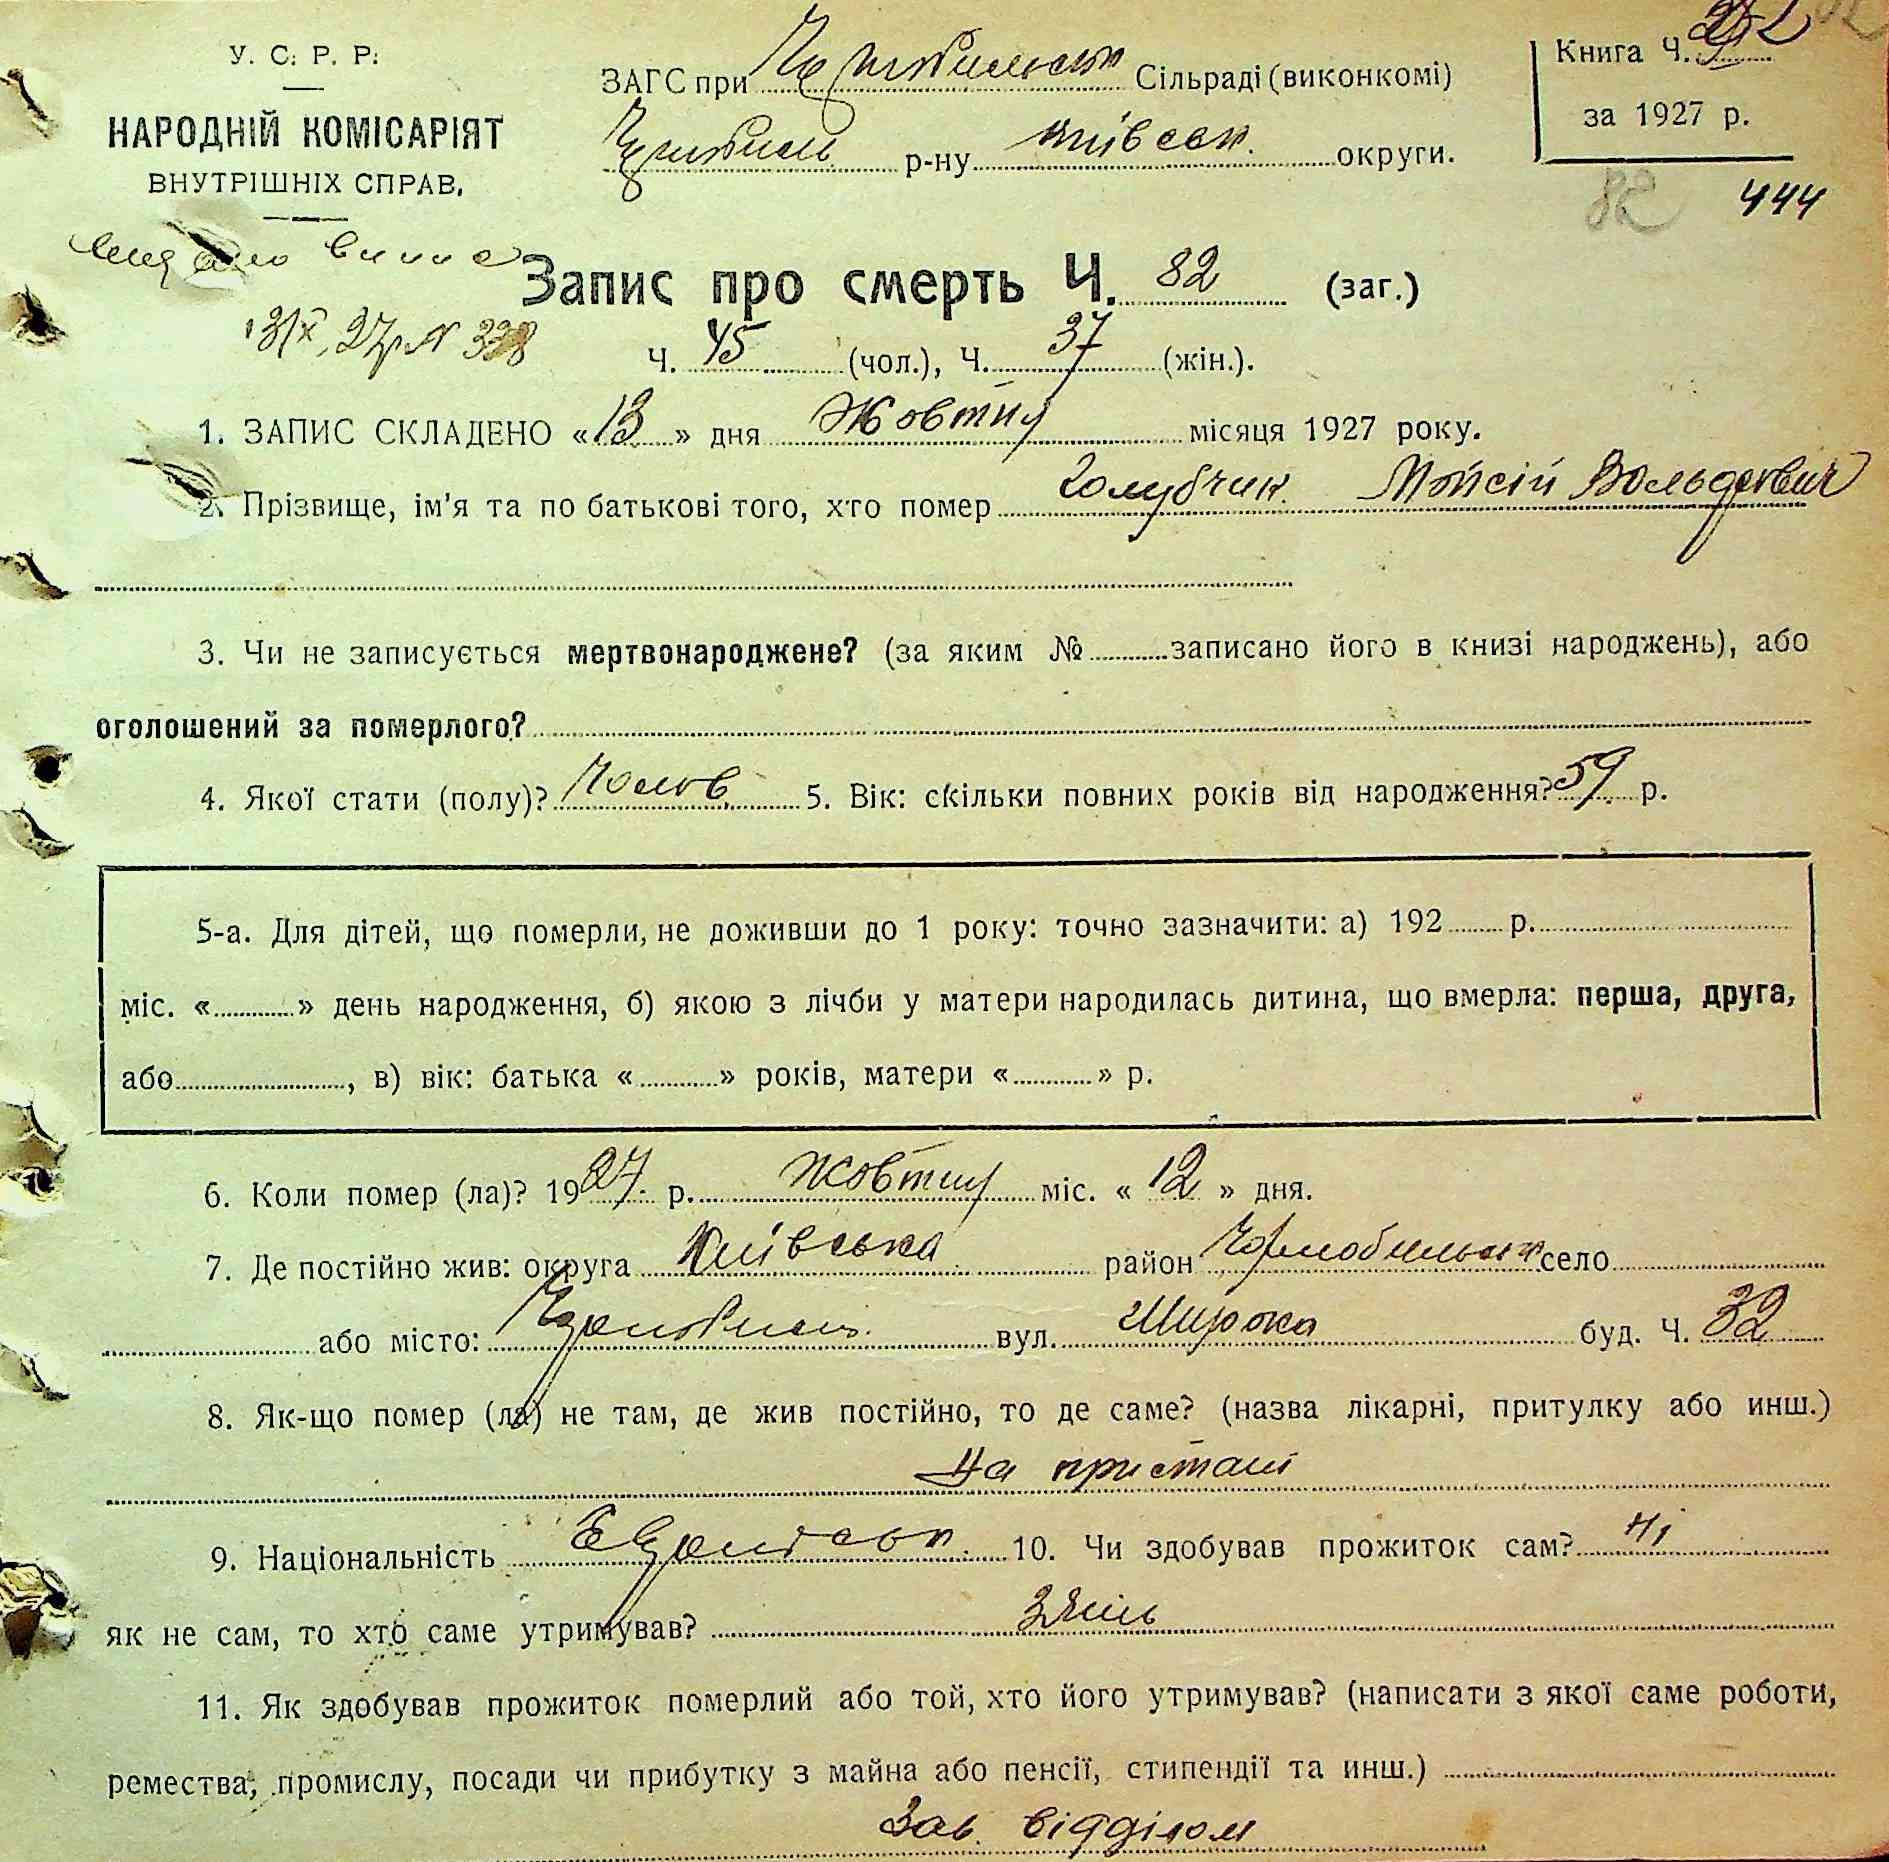 У. С. Р. Р.
НАРОДНІЙ КОМІСАРІЯТ
ВНУТРІШНІХ СПРАВ.
ЗАГС при Чорнобильськ Сільраді (виконкомі)
Чорнобиль р-ну Київськ. округи.
Книга Ч.
за 1927 р.
82 444
Запис про смерть Ч. 82 (заг.)
13/X 27р. N 338
Ч. 45 (чол.), Ч. 37 (жін.).
1. ЗАПИС СКЛАДЕНО «13» дня Жовтня місяця 1927 року.
2. Прізвище, ім'я та по батькові того, хто помер Голубчик. Мойсій Вольдович
3. Чи не записується мертвонароджене? (за яким № записано його в книзі народжень), або
оголошений за померлого?
4. Якої стати (полу)? Чолов. 5. Вік: скільки повних років від народження? 59 р.
5-а. Для дітей, що померли, не доживши до 1 року: точно зазначити: а) 192 р.
міс. « » день народження, б) якою з лічби у матери народилась дитина, що вмерла: перша, друга,
або , в) вік: батька « » років, матери « » р.
6. Коли помер (ла)? 1927 р. Жовтня міс. «12» дня.
7. Де постійно жив: округа Київська район Чорнобильськ село
або місто: Чорнобиль вул. Широка буд. Ч. 32
8. Як-що помер (ла) не там, де жив постійно, то де саме? (назва лікарні, притулку або инш.)
На пристані
9. Національність Єврейськ. 10. Чи здобував прожиток сам? Ні
як не сам, то хто саме утримував? Зять
11. Як здобував прожиток померлий або той, хто його утримував? (написати з якої саме роботи,
ремества, промислу, посади чи прибутку з майна або пенсії, стипендії та инш.)
Зав. відділом